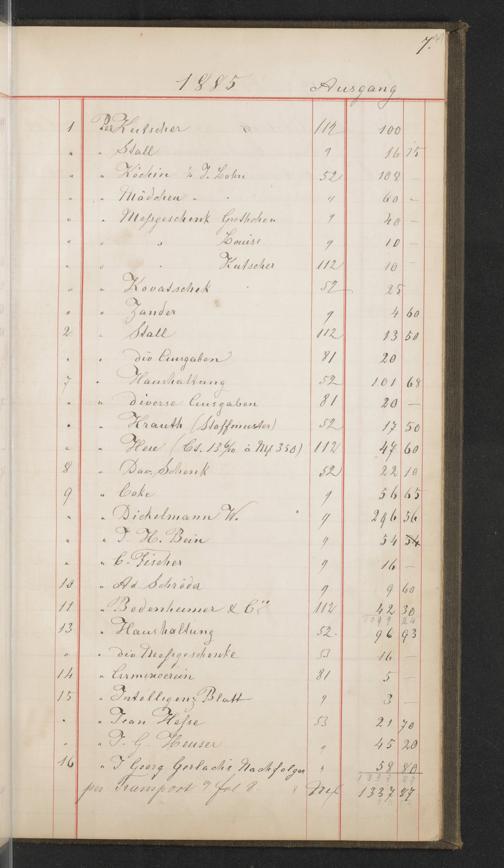 7.
1885 Ausgang
1 Per Kutscher 112 100
" " Stall " 16 75
" " Köchin ½ J. Lohn 52 108 –
" " Mädchen " " " 60 –
" " Meßgeschenk Grethchen " 40 –
" " " Louise " 10 –
" " " Kutscher 112 10 –
" " Kovatschek 52 25
" " Zander " 4 60
2 " Stall 112 13 50
" " div Ausgaben 81 20
7 " Haushaltung 52 101 68
" " diverse Ausgaben 81 20 –
" " Krauth (Stoffmuster) 52 17 50
" " Heu ( 350) 112 47 60
8 " Schenk 52 22 10
9 " Coke " 56 65
" " Dickelmann W. " 296 56
" " J. H. Bein " 54 54
" " C. Fischer " 16 –
10 " Ad Schröder " 9 60
11 " Bodenheimer & Co 112 42 30
13 " Haushaltung 52 96 93
" " div Meßgeschenke 53 16 –
14 " Armenverein 81 5 –
15 " Intelligenz Blatt " 3 –
" " Jean Hesse 53 21 70
" " F. G. Heuser " 45 20
16 " J Georg Gerlachs Nachfolger " 58 80
per Transport fol 8 Mk 1337 87